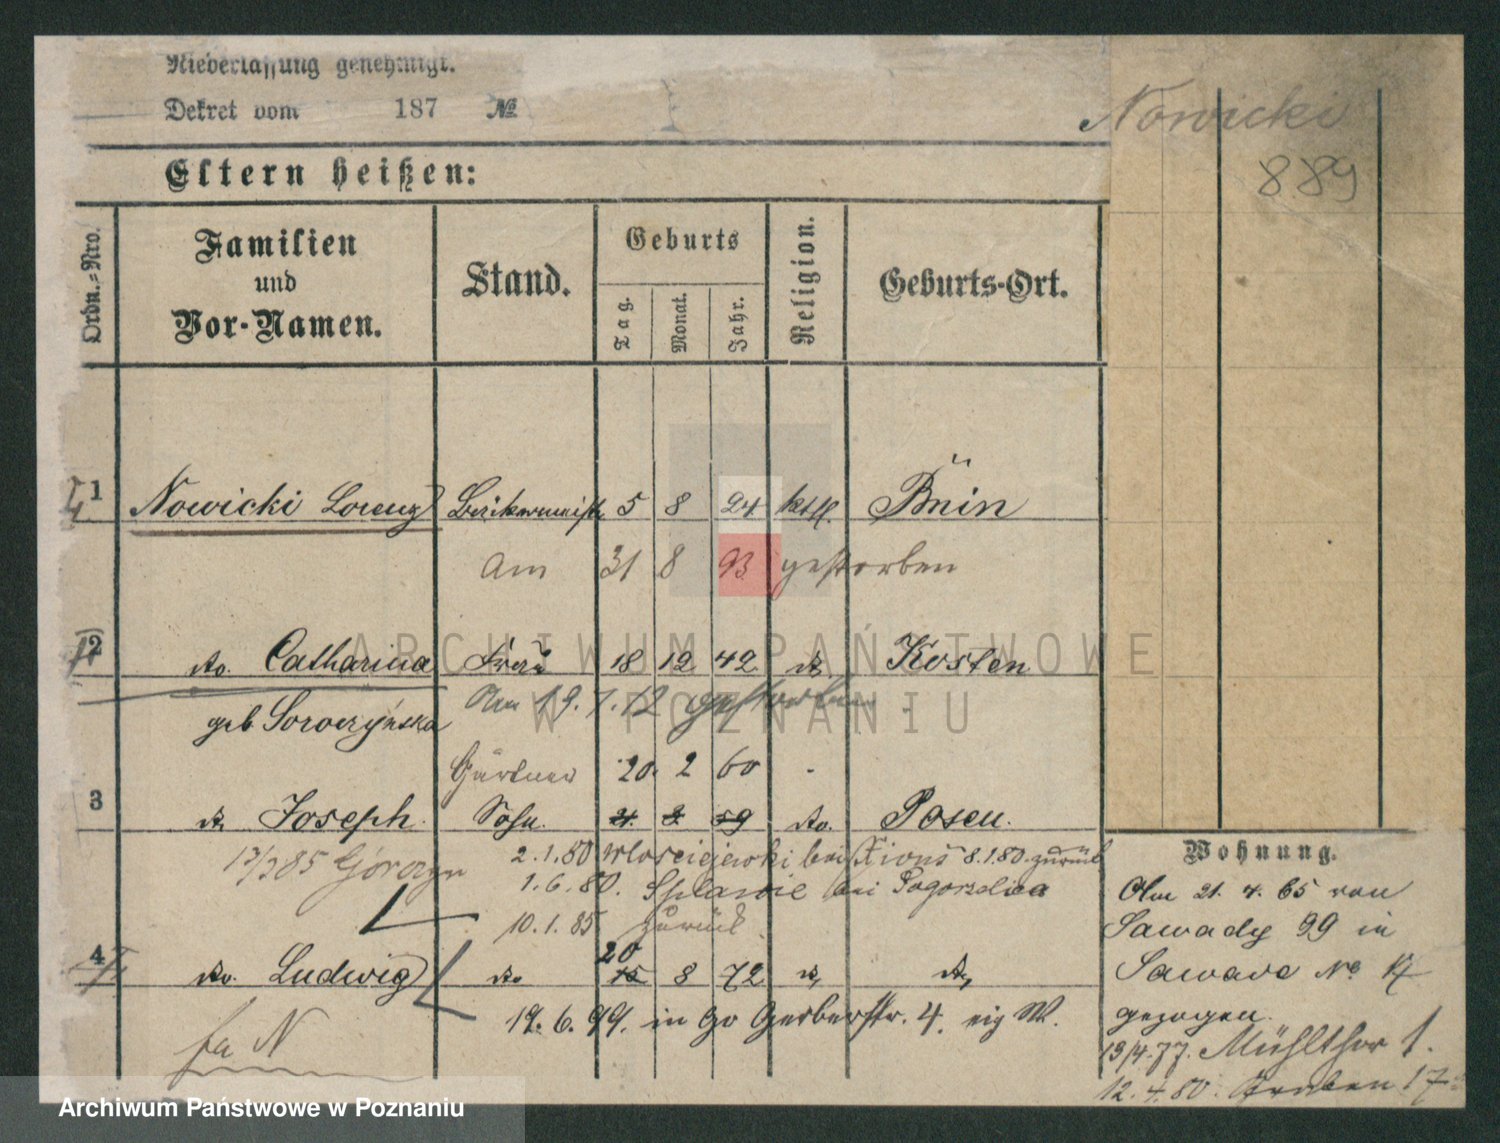 Niederlassung genehmigt.
Dekret vom 187 №
Nowicki
889
Eltern heißen:
Ordn.-Nro.
Familien und Vor-Namen.
Stand.
Geburts
Tag.
Monat.
Jahr.
Religion.
Geburts-Ort.
1 Nowicki Lorenz 5 8 24 kthl. Bnin
am 31 8 93 gestorben
2 do. Catharina Frau 18 12 42 do Kosten
Am 19. 1. 12 gestorben
geb Soroczyńska
Gärtner 20. 2 60
3 do Joseph. Sohn. 21. 2. 59 do. Posen.
2.1.80 Wlosciejewki bei Xions 8.1.80. zurück
13/3 85 Górczyn
1.6.80. Splawie bei Pogorzelica
10.1.85 zurück.
20
4 do. Ludwig do 15 8 72 do do
19. 6. 99. in Go Gerberstr. 4. eig W.
fa N
Wohnung.
Am 21. 4. 65 von
Sawady 99 in
Sawade No 17
gezogen.
13/4.77. Mühlthor 1.
12.4.80. Graben 17
ARCHIWUM PAŃSTWOWE
W POZNANIU
Archiwum Państwowe w Poznaniu